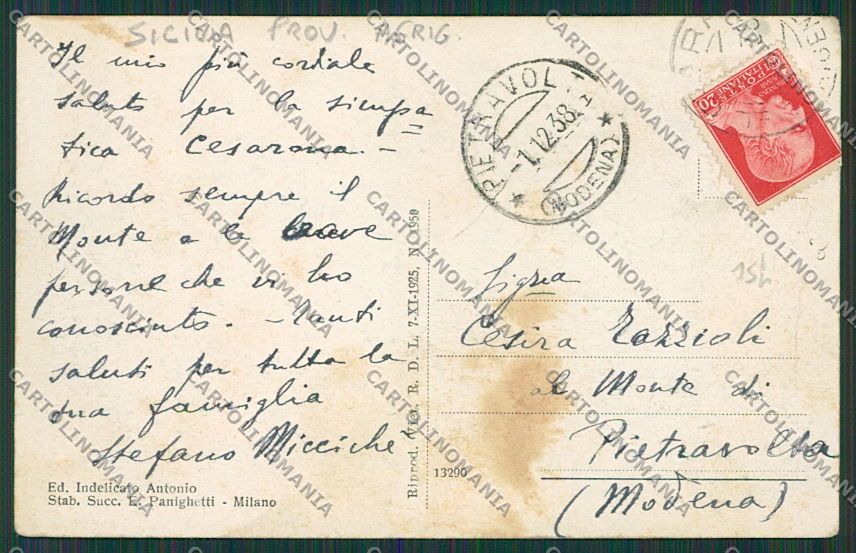 SICILIA PROV. AGRIG.
Il mio più cordiale
saluto per la simpa=
tica Cesarona. -
Ricordo sempre il
Monte a le brave
persone che vi ho
conosciuto. - Tanti
saluti per tutta la
sua famiglia
Stefano Micciché
Ed. Indelicato Antonio
Stab. Succ. E. Panighetti - Milano
Riprod. Viet. R. D. L. 7-XI-1925, N. 1950
13290
PIETRAVOLTA
-1.12.38
(MODENA)
POSTE ITALIANE
20
15L
Sig.na
Cesira
al Monte di
Pietravolta
(Modena)
CARTOLINOMANIA